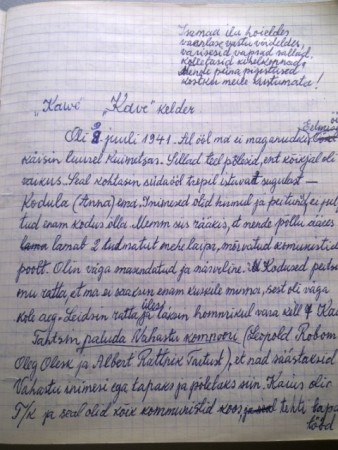 Isamaa ilu hoieldes
vaenlase vastu võideldes,
varisesid vaprad vallad,
kolletasid kihelkonnad,
Nende piina pigistused
kostku meile kustumata!
"Kawe" "Kave" kelder
Oli 8. juuli 1941. All ööl ma ei maganudki,
käisin luurel Küinelsas. Sillad teel põlesid, ent kõikjal oli
vaikus. Seal kohtasin südaööd trepil istuvat sugulast –
Kodula (Anna) ema. Inimesed olid hirmul ja peitunud, ei jul-
tud enam kodus olla. Memm siis rääkis, et nende põllu ääres
lamab 2 tundmatut mehe laipa, mõrvatud kommunistide
poolt. Olin väga masendatud ja närviline. Kodused peitsid
mu ratta, et ma ei saaks enam kuskile minna, sest oli väga
kole aeg. Leidsin ratta üles ja läksin hommikul vara kell 4
Tahtsin paluda Vahastu kompoori (Leopold Robom
Oleg Olesk ja Albert Rattrix Tartust), et nad säästaksid
Vahastu inimesi ega tapaks ja põletaks siin. Kaius oli
T/K ja seal olid kõik kommunistid koos, tehti tapa
tööd